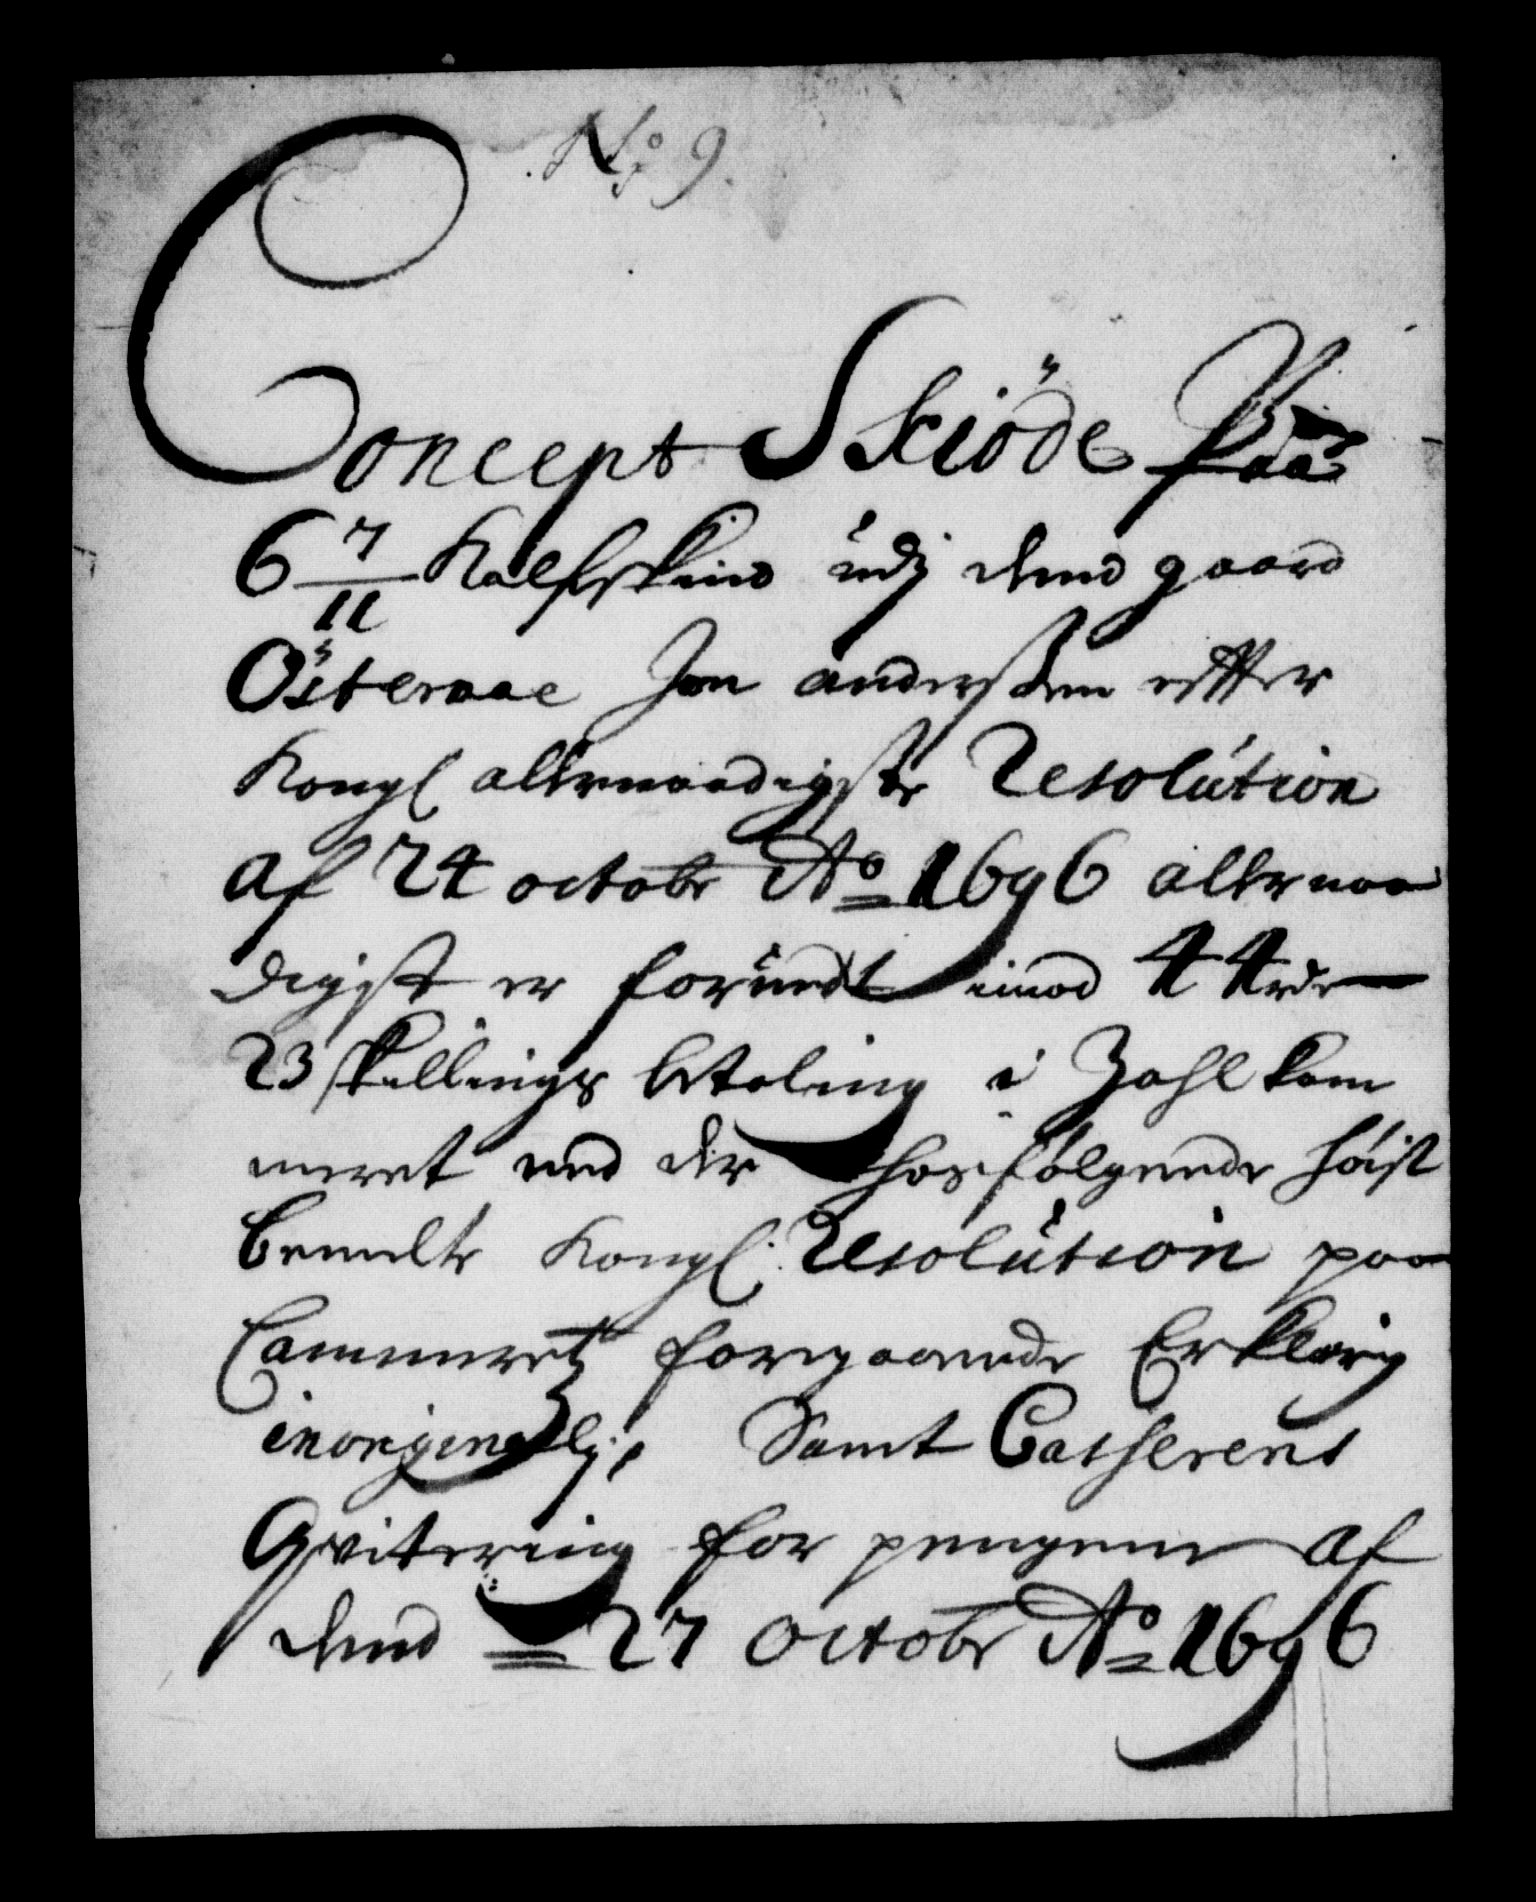 No: 9.
Concept Skiöde Paa
6 7/11 Kalfskind udj dend gaard
Österaae Jon anderssen effter
Kongl allernaadigste Resolution
af 24 octobr Ao 1696 allernaa
digst er forundt imod 44 rdr
23 skillings betaling i Zahlkam
meret med der hosfølgende høist
bemelte Kongl: Resolution paa
Cammeretz foregaaende Erklæring
in originalj, Samt Casherens
Qvitering for pengene af
dend 27 octobr Ao 1696